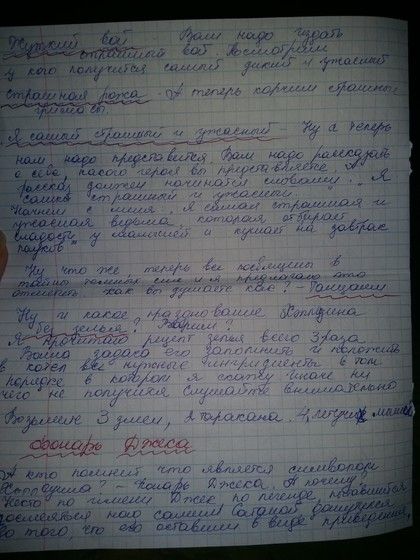 Жуткий вой - Вам надо издать
страшный вой. Посмотрим
у кого получится самый дикий и ужасный
страшная рожа - А теперь корчим страшные
гримасы.
Я самый страшный и ужасный - Ну а теперь
нам надо представится. Вам надо рассказать
о себе, какого героя вы представляете.
рассказ должен начинатся словами: "Я
самый страшный и ужасный"
Начнем с меня. Я самая страшная и
ужасная ведьма, которая отбирает
сладости у малышей и кушает на завтрак
пауков"
Ну что же, теперь все посвящены в
тайны темной силы и я предлагаю это
отметить. Как вы думаете как? - Танцами
Ну и какое празднование Хэллуина
без зелья? Варим?
Я прочитаю рецепт зелья всего 3 раза
Ваша задача его запомнить и положить
в котел все нужные ингридиенты в том
порядке в котором я скажу иначе ни
чего не получится Слушайте внимательно
Возьмем 3 змеи, 2 таракана. 4 летучих мыши
Фонарь Джека
А кто помнит что является символом
Хэллуина? - Фонарь Джека. А почему?
Некто по имени Джек по легенде,
посмеялся над самим Сатаной
до того, что его оставили в виде привидения,